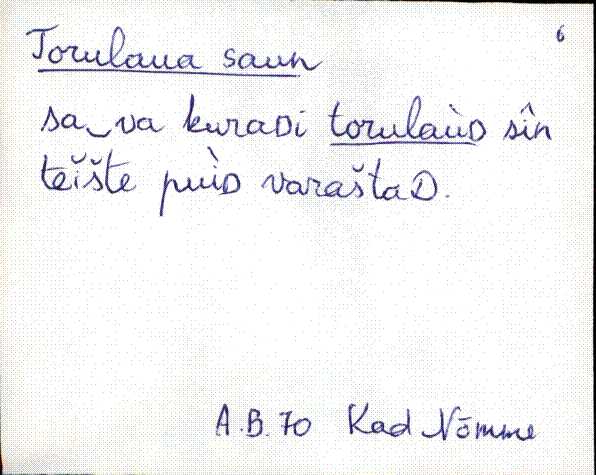 6
Torulaua saun
sa‿va kuraDi torulaùD sîn
teĭšte pùiD varaštaD.
A.B. 70 Kad Nõmme